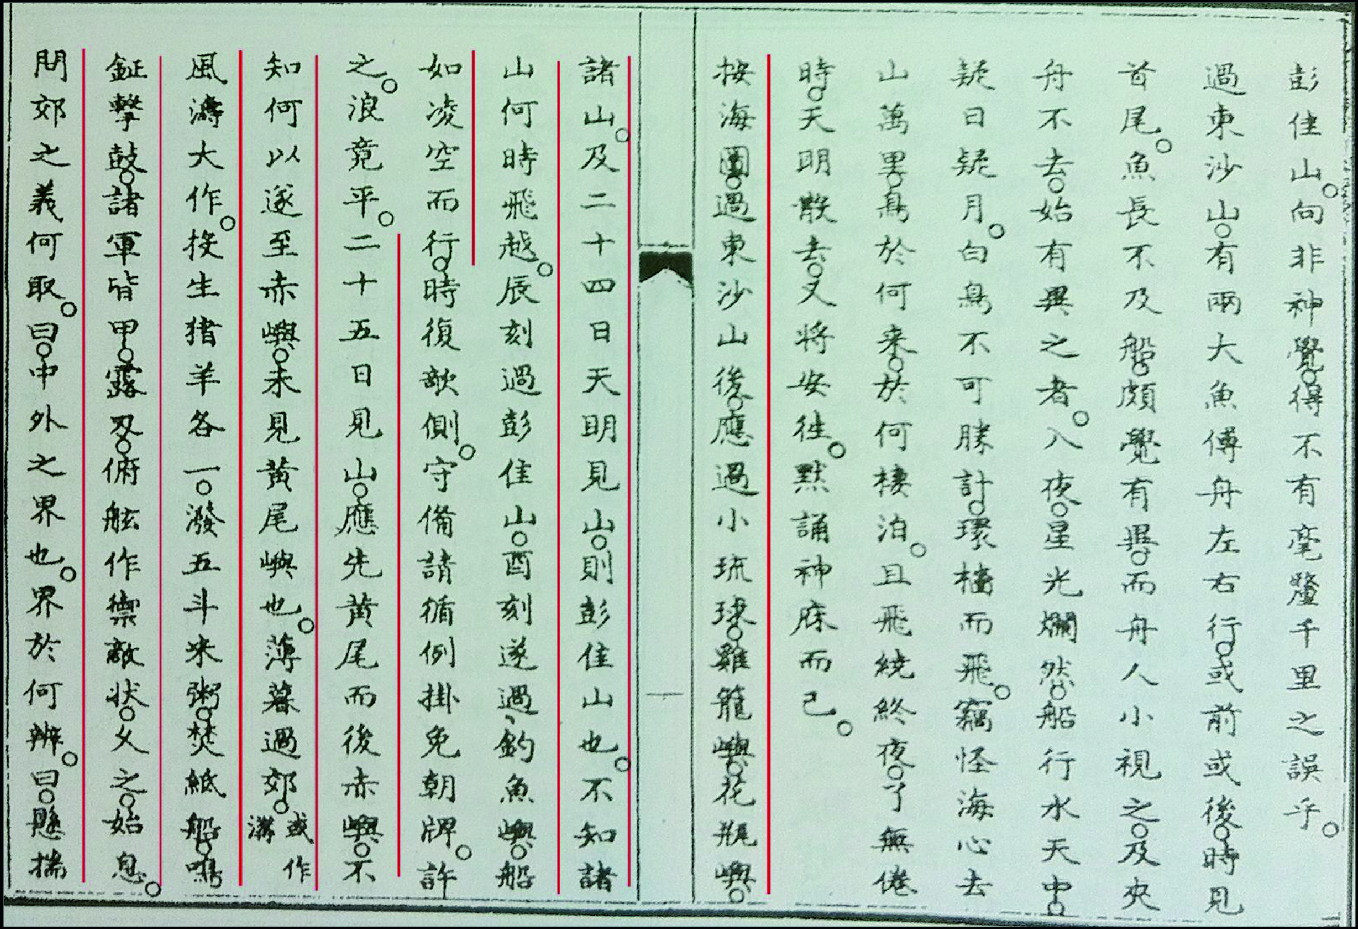 彭佳山。向非神覺。得不有毫釐千里之誤乎。
過東沙山。有兩大魚傅舟左右行。或前或後。時見
首尾。魚長不及船。頗覺有異。而舟人小視之。及夾
舟不去。始有異之者。入夜。星光爛然。船行水天中。
疑日疑月。白鳥不可勝計。環檣而飛。竊怪海心去
山萬里。鳥於何來。於何棲泊。且飛繞終夜。了無倦
時。天明散去。又將安往。默誦神庥而已。
按海圖。過東沙山後。應過小琉球。雞籠嶼。花瓶嶼。
諸山。及二十四日天明見山。則彭佳山也。不知諸
山何時飛越。辰刻過彭佳山。酉刻遂過釣魚嶼。船
如凌空而行。時復欹側。守備請循例掛免朝牌。許
之。浪竟平。二十五日見山。應先黃尾而後赤嶼。不
知何以遂至赤嶼。未見黃尾嶼也。薄暮過郊。或作溝
風濤大作。投生猪羊各一。潑五斗米粥。焚紙船。鳴
鉦擊鼓。諸軍皆甲。露刃。俯舷作禦敵狀。久之。始息。
問郊之義何取。曰。中外之界也。界於何辨。曰。懸揣